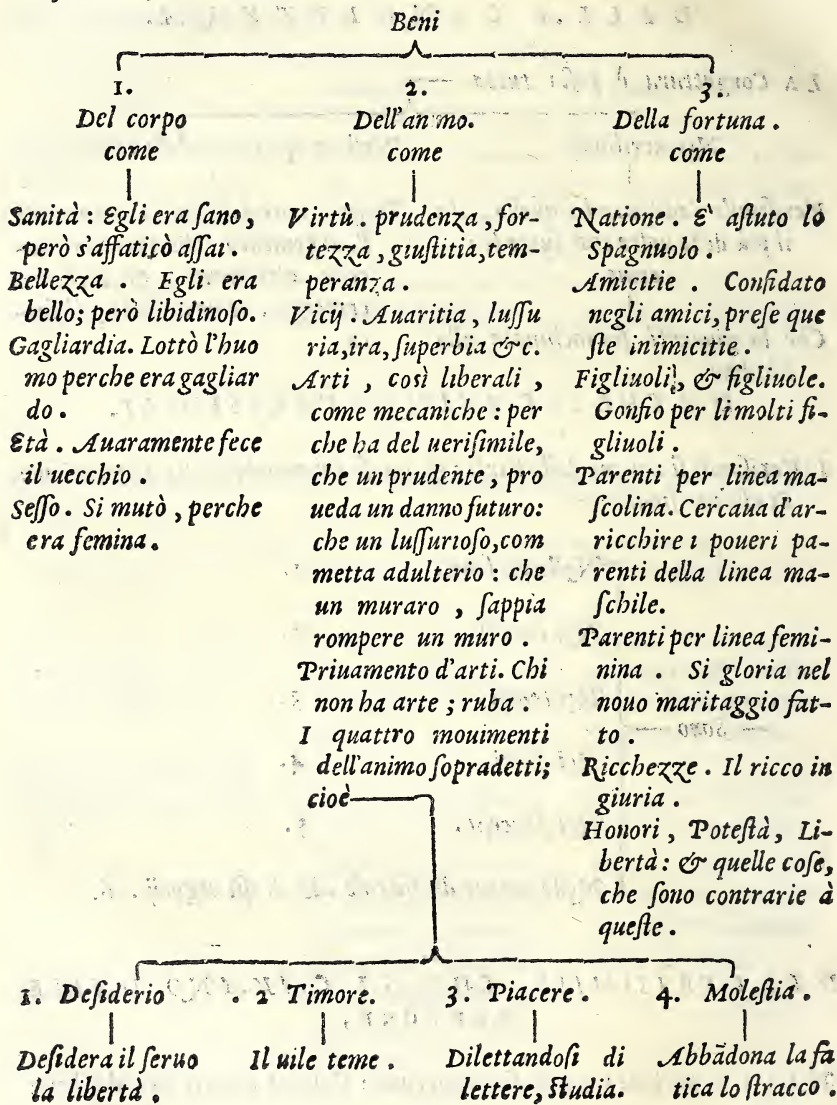 Beni
1.
Del corpo
come
Sanità : Egli era ſano,
però s'affaticò aſſai.
Bellezza . Egli era
bello; però libidinoſo.
Gagliardia. Lottò l'huo
mo perche era gagliar
do.
Età . Auaramente fece
il uecchio .
Seſſo. Si mutò , perche
era femina.
2.
Dell'an mo.
come
Virtù . prudenza , for-
tezza , giuſtitia, tem-
peranza .
Vicij . Auaritia , luſſu
ria, ira, ſuperbia &c.
Arti , così liberali ,
come mecaniche : per
che ha del ueriſimile,
che un prudente , pro
ueda un danno futuro:
che un luſſurioſo, com
metta adulterio : che
un muraro , ſappia
rompere un muro .
Priuamento d'arti. Chi
non ha arte ; ruba .
I quattro mouimenti
dell'animo ſopradetti;
cioè
3.
Della fortuna .
come
Natione . E' aſtuto lo
Spagnuolo .
Amicitie . Confidato
negli amici, preſe que
ſte inimicitie .
Figliuoli, & figliuole.
Gonfio per li molti fi-
gliuoli .
Parenti per linea ma-
ſcolina. Cercaua d'ar-
ricchire i poueri pa-
renti della linea ma-
ſchile.
Parenti per linea femi-
nina . Si gloria nel
nouo maritaggio fat-
to .
Ricchezze . Il ricco in
giuria .
Honori , Poteſtà , Li-
bertà : & quelle coſe,
che ſono contrarie à
queſte .
1. Deſiderio .
Deſidera il ſeruo
la libertà .
2 Timore.
Il uile teme .
3. Piacere .
Dilettandoſi di
lettere, ſtudia.
4. Moleſtia .
Abbādona la fa
tica lo ſtracco .